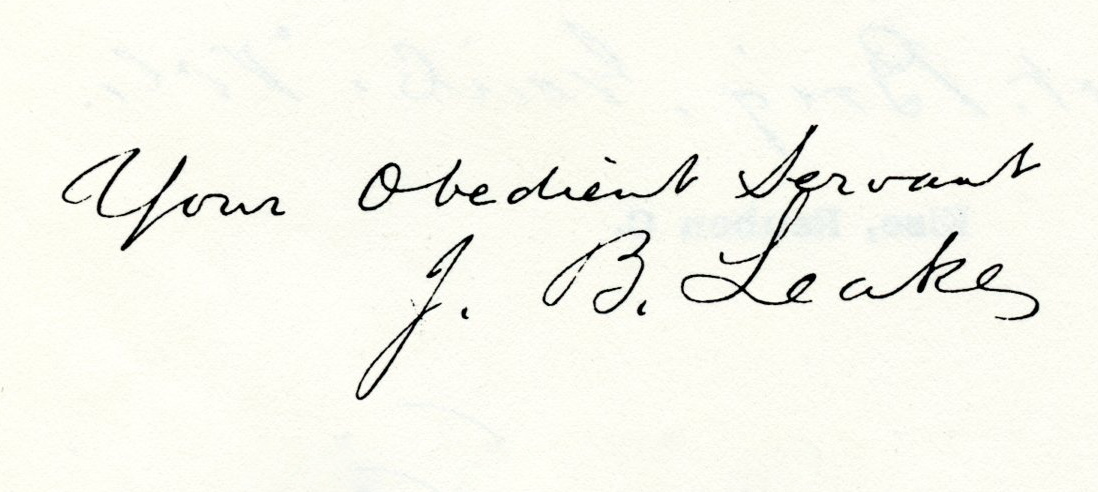 Your Obedient Servant
J. B. Leake